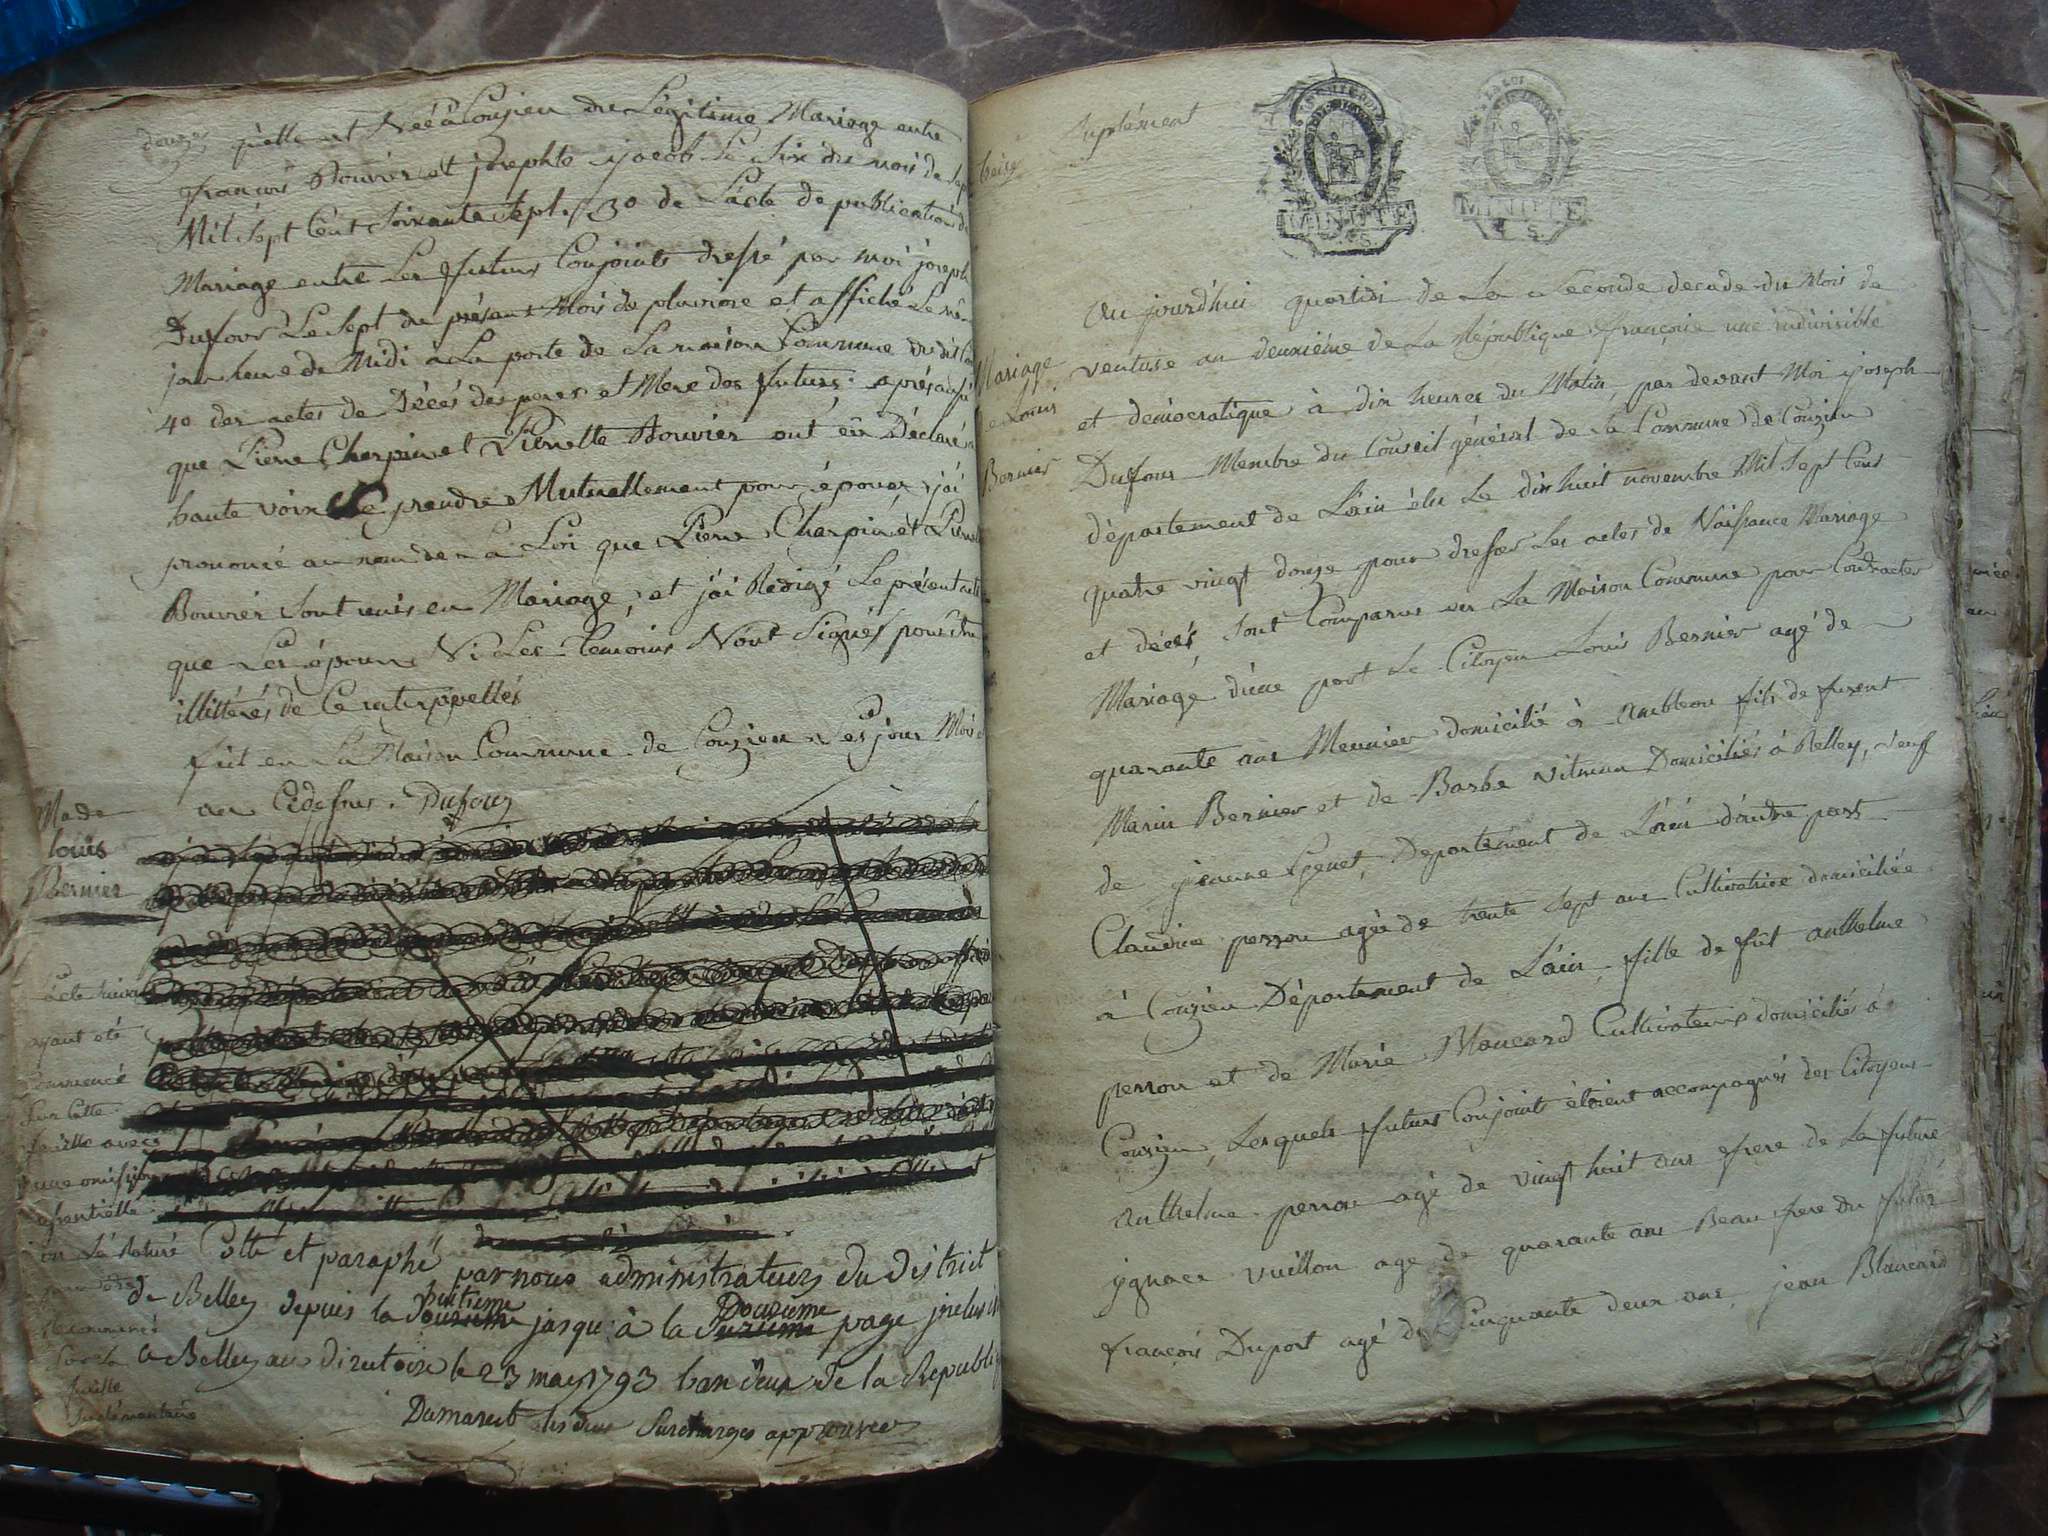 douze
qu'elle est Née à Conzieu du Légitime Mariage entre
françois Bouvier et josephte jacob le six du mois de sept
Mil sept Cent soixante sept. 3o de L'acte de publication de
Mariage entre Les futurs Conjoints dressé par moi joseph
Dufour Le sept du présent Mois de pluviose et affiché le mê
jour heure de Midi à La porte de La maison Commune
4o des actes de Décés des peres et Mere des futurs; aprés aussi
que Pierre Charpin et Pierrette Bouvier ont eû Déclaré à
haute voix se prendre Mutuellement pour époux, j'ai
prononcé au nom de La Loi que Pierre Charpin et Pierrette
Bouvier sont unis en Mariage, et j'ai Rédigé Le présent acte
que Les époux Ni Les témoins N'ont Signés pour être
illittérés de Ce interppellés
fait en La Maison Commune de Conzieu Les jour Mois
an Cidessus. Dufour
M. de
louis
Bernier
L'acte suivant
ayant été
Commencé
sur Cette
feuille avec
une omission
essentielle
on L'a Raturé
pour être
Recommencé
sur la
feuille
suplémentaire
Cotté et paraphé par nous administrateurs du District
de Belley depuis la huitieme jusqu'à la Douzieme page inclus
a Belley au directoire le 23 may 1793 l'an deux de la Republi
Damarest les deux Surcharges approuvees
treize
Suplément
MINUTE
MINUTE
Mariage
de Louis
Bernier
Au jourd'hui quartidi de La Seconde decade du Mois de
ventuse an deuxiéme de La République françoise une indivisible
et démocratique à dix heures du Matin, par devant Moi joseph
Dufour Membre du Conseil général de La Commune de Conzieu
département de L'ain élu Le dix huit novembre Mil Sept Cent
quatre vingt douze pour dresser Les actes de Naissance Mariage
et décés, sont Comparus en La Maison Commune pour Contracter
Mariage d'une part Le Citoyen Louis Bernier agé de
quarante ans Meunier domicilié à Ambleon fils de furent
Marin Bernier et de Barbe vitman Domiciliés à Belley, veuf
de jeanne Genet, Departement de L'ain d'autre part
Claudine perron agée de trente Sept ans Cultivatrice domiciliée
à Conzieu Département de L'ain fille de fût anthelme
perron et de Marie Blancard Cultivateurs domiciliés à
Conzieu, Lesquels futurs Conjoints étoient accompagnés des Citoyens
anthelme perron agé de vingt huit ans frere de La future
ygnace vuillon agé de quarante ans Beau frere du futur
françois Duport agé de Cinquante deux ans, jean Blancard